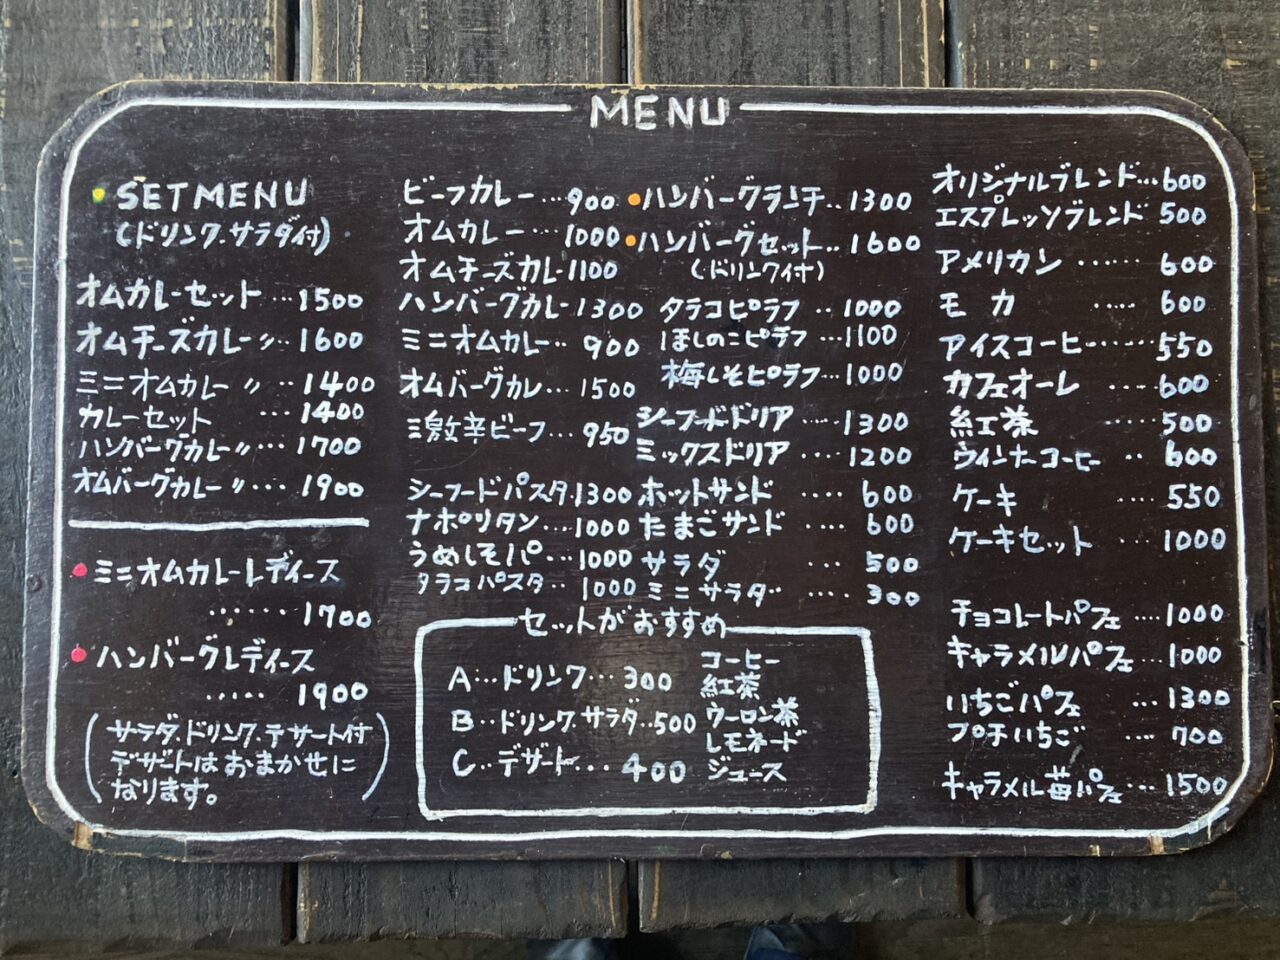 MENU
SETMENU
(ドリンク.サラダ付)
オムカレーセット…1500
オムチーズカレー〃…1600
ミニオムカレー〃…1400
カレーセット…1400
ハンバーグカレー〃…1700
オムバーグカレー〃…1900
ミニオムカレーレディース
……1700
ハンバーグレディース
……1900
(サラダ.ドリンク.デサート付
デザートはおまかせに
なります。)
ビーフカレー…900
オムカレー…1000
オムチーズカレ-1100
ハンバーグカレ-1300
ミニオムカレー..900
オムバーグカレ…1500
ミ激辛ビーフ…950
シーフードパスタ.1300
ナポリタン…1000
うめしそパ…1000
タラコパスタ..1000
ハンバーグランチ..1300
ハンバーグセット..1600
(ドリンク付)
タラコピラフ..1000
ほしのこピラフ…1100
梅しそピラフ…1000
シーフードドリア……1300
ミックスドリア….1200
ホットサンド….600
たまごサンド….600
サラダ…500
ミニサラダ….300
セットがおすすめ
A…ドリンク…300
B..ドリンク.サラダ..500
C..デザート…400
コーヒー
紅茶
ウーロン茶
レモネード
ジュース
オリジナルブレンド…600
エスプレッソブレンド 500
アメリカン……600
モカ……600
アイスコーヒー……550
カフェオーレ….600
紅茶……500
ウィンナーコーヒー..600
ケーキ….550
ケーキセット…1000
チョコレートパフェ….1000
キャラメルパフェ…1000
いちごパフェ…1300
プチいちご….700
キャラメル苺パフェ…1500